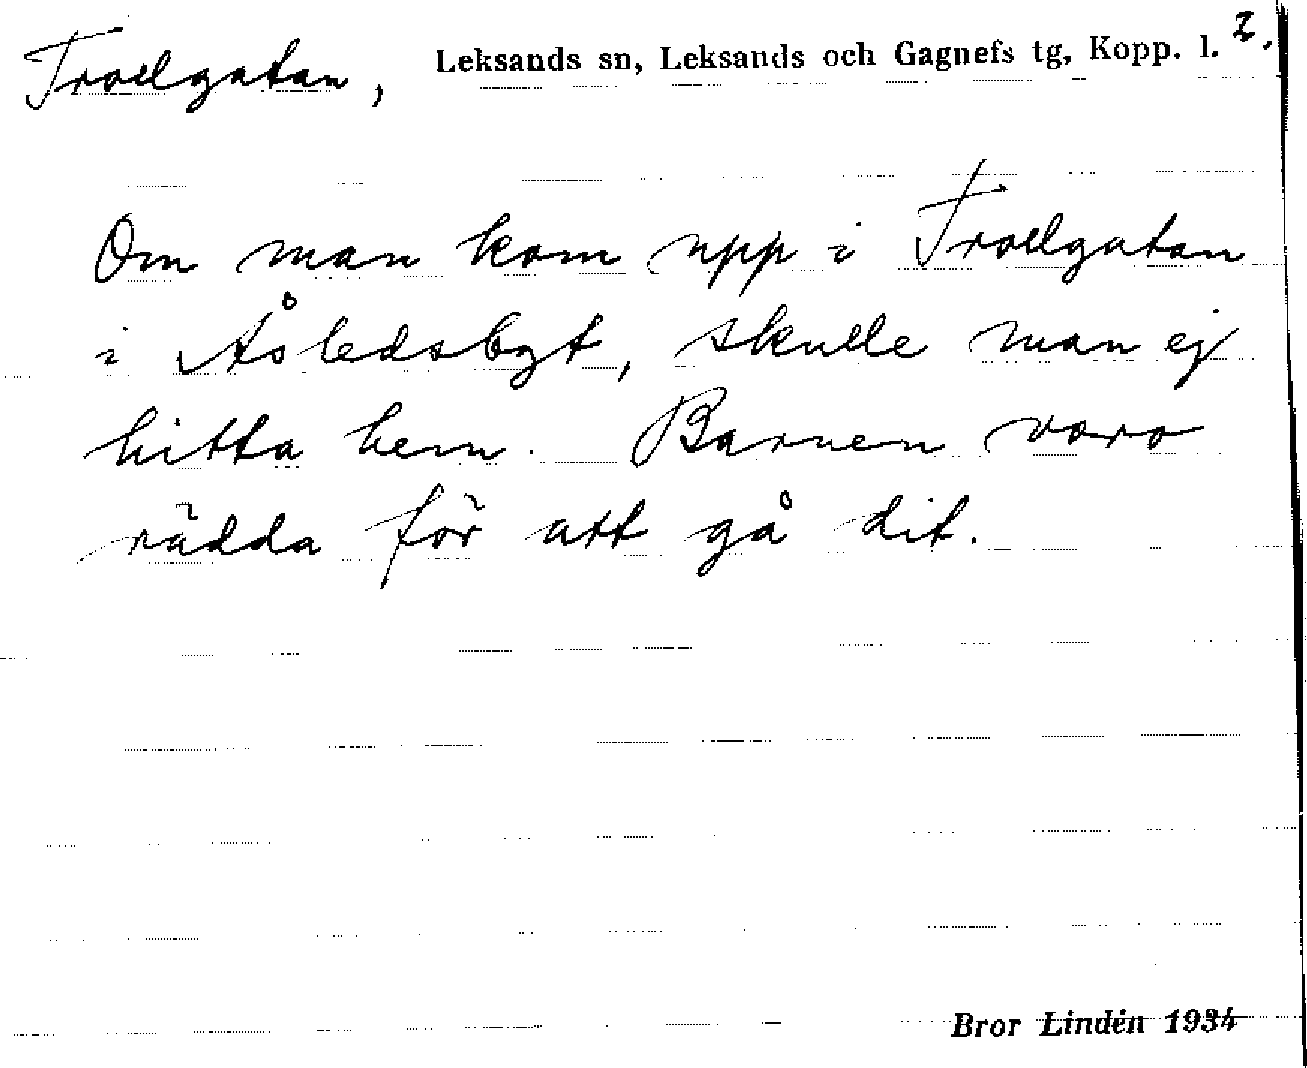 Trollgatan, Leksands sn, Leksands och Gagnefs tg, Kopp. l. 2.
Om man kom upp i Trollgatan
i Åsledsbygt, skulle man ej
hitta hem. Barnen voro
rädda för att gå dit.
Bror Lindén 1934